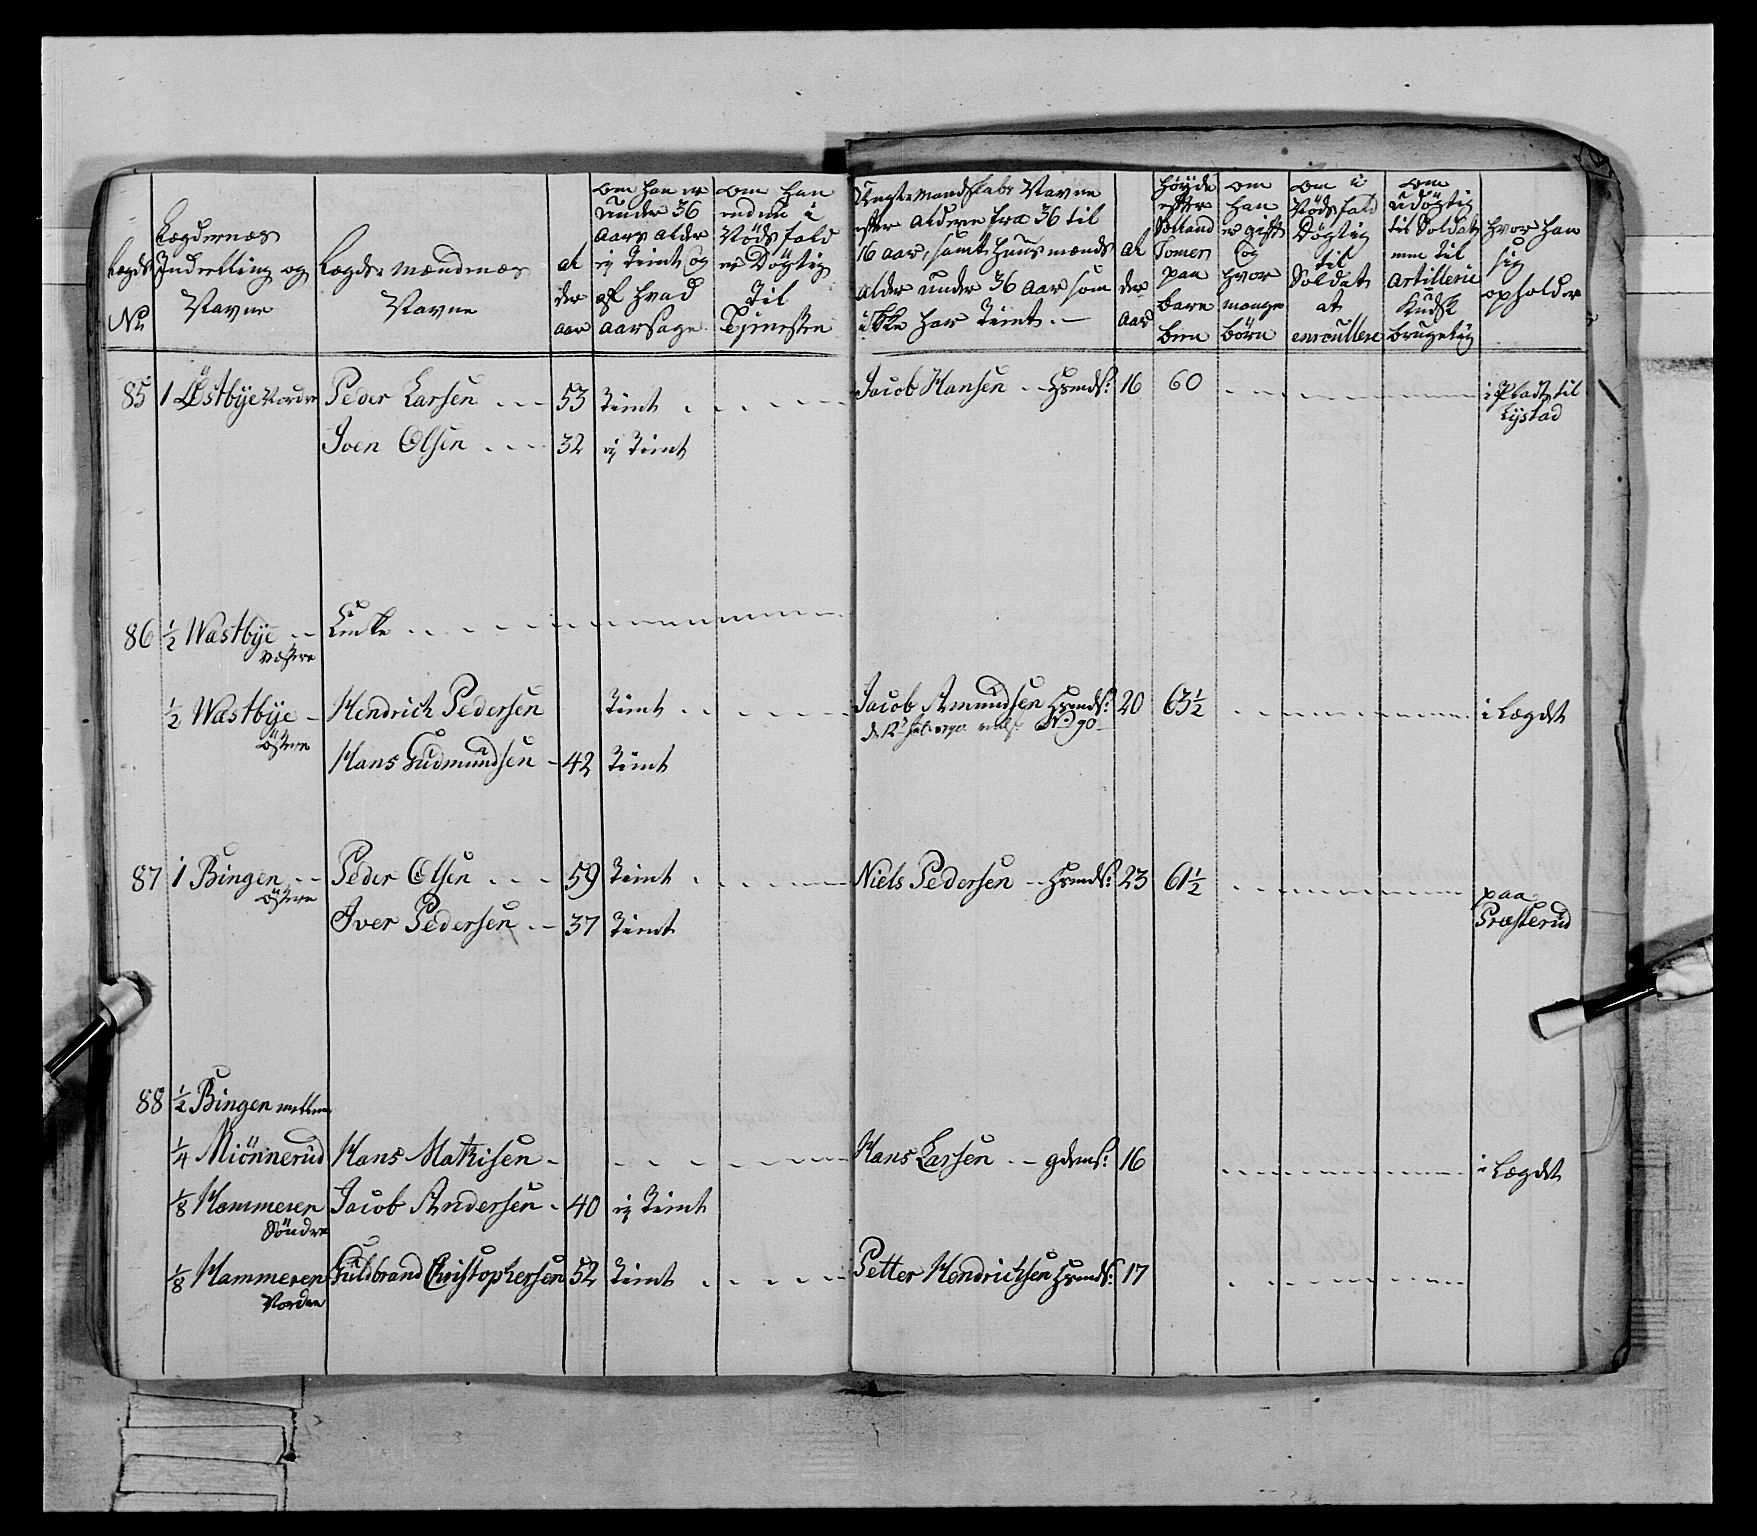 Lægds
No
Lægdernes
Inddeling og
Navne
Lægds Mændenes
Navne
al
der
aar
om han er
Under 36
Aars alder
ej tient, og
af hvad
aarsage
om Han
endnu i
Nöds fald
er Dögtig
Til
Tjeneste
Unge Mandskabs Navne
efter alderen fra 36 til
16 aar, samt Huusmænds
alder under 36 Aar som
ikke har tient. —
al
der
aar
Höyde
efter
Tomer
paa
bare
been
om
Han
er gift
og
hvor
mange
börn
om i
Nöds fald
Dögtig
til
Soldat
at
enroullere
om
Udögtig
til Soldat
men til
Artillerie
Kudsk
brugelig
Hvor Han
sig
opholder
85 1 Østbye Nordre Peder Larsen 53 Tient Jacob Hansen Hsmds: 16 60 i Plads til
Lystad
Iven Olsen 32 ej Tient
86 ½ Wæstbye Enke
Westre
½ Wæstbye Hendrich Pedersen Tient Jacob Amundsen Hsmds: 20 63½ i Lægdet
Östre No 90
Hans Gudmundsen 42 Tient
87 1 Bingen Peder Olsen 59 Tient Niels Pedersen Hsmds: 23 61½ paa
Östre Præsterud
Iver Pedersen 37 Tient
88 ½ Bingen mellem
¼ Miönnerud Hans Mathisen Hans Larsen gdms: 16 i Lægdet
⅛ Hammeren Jacob Andersen 40 ej Tient
Söndre
⅛ Hammeren Guldbrand Christophersen 52 Tient Petter Hendrichsen Hsmds: 17
Nordre